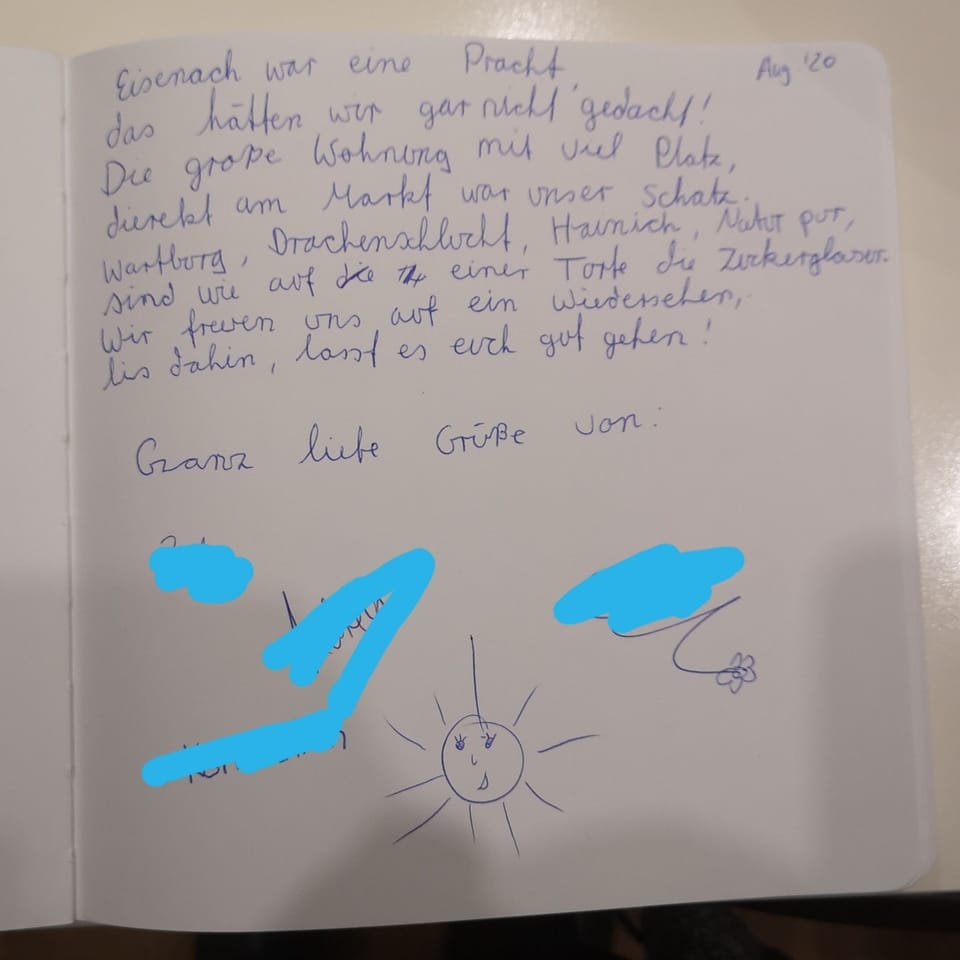 Eisenach war eine Pracht, Aug '20
das hätten wir gar nicht gedacht!
Die große Wohnung mit viel Platz,
dierekt am Markt war unser Schatz.
Wartburg, Drachenschlucht, Hainich, Natur pur,
sind wie auf einer Torte die Zuckerglasur.
Wir freuen uns auf ein Wiedersehen,
bis dahin, lasst es euch gut gehen!
Ganz liebe Grüße von: